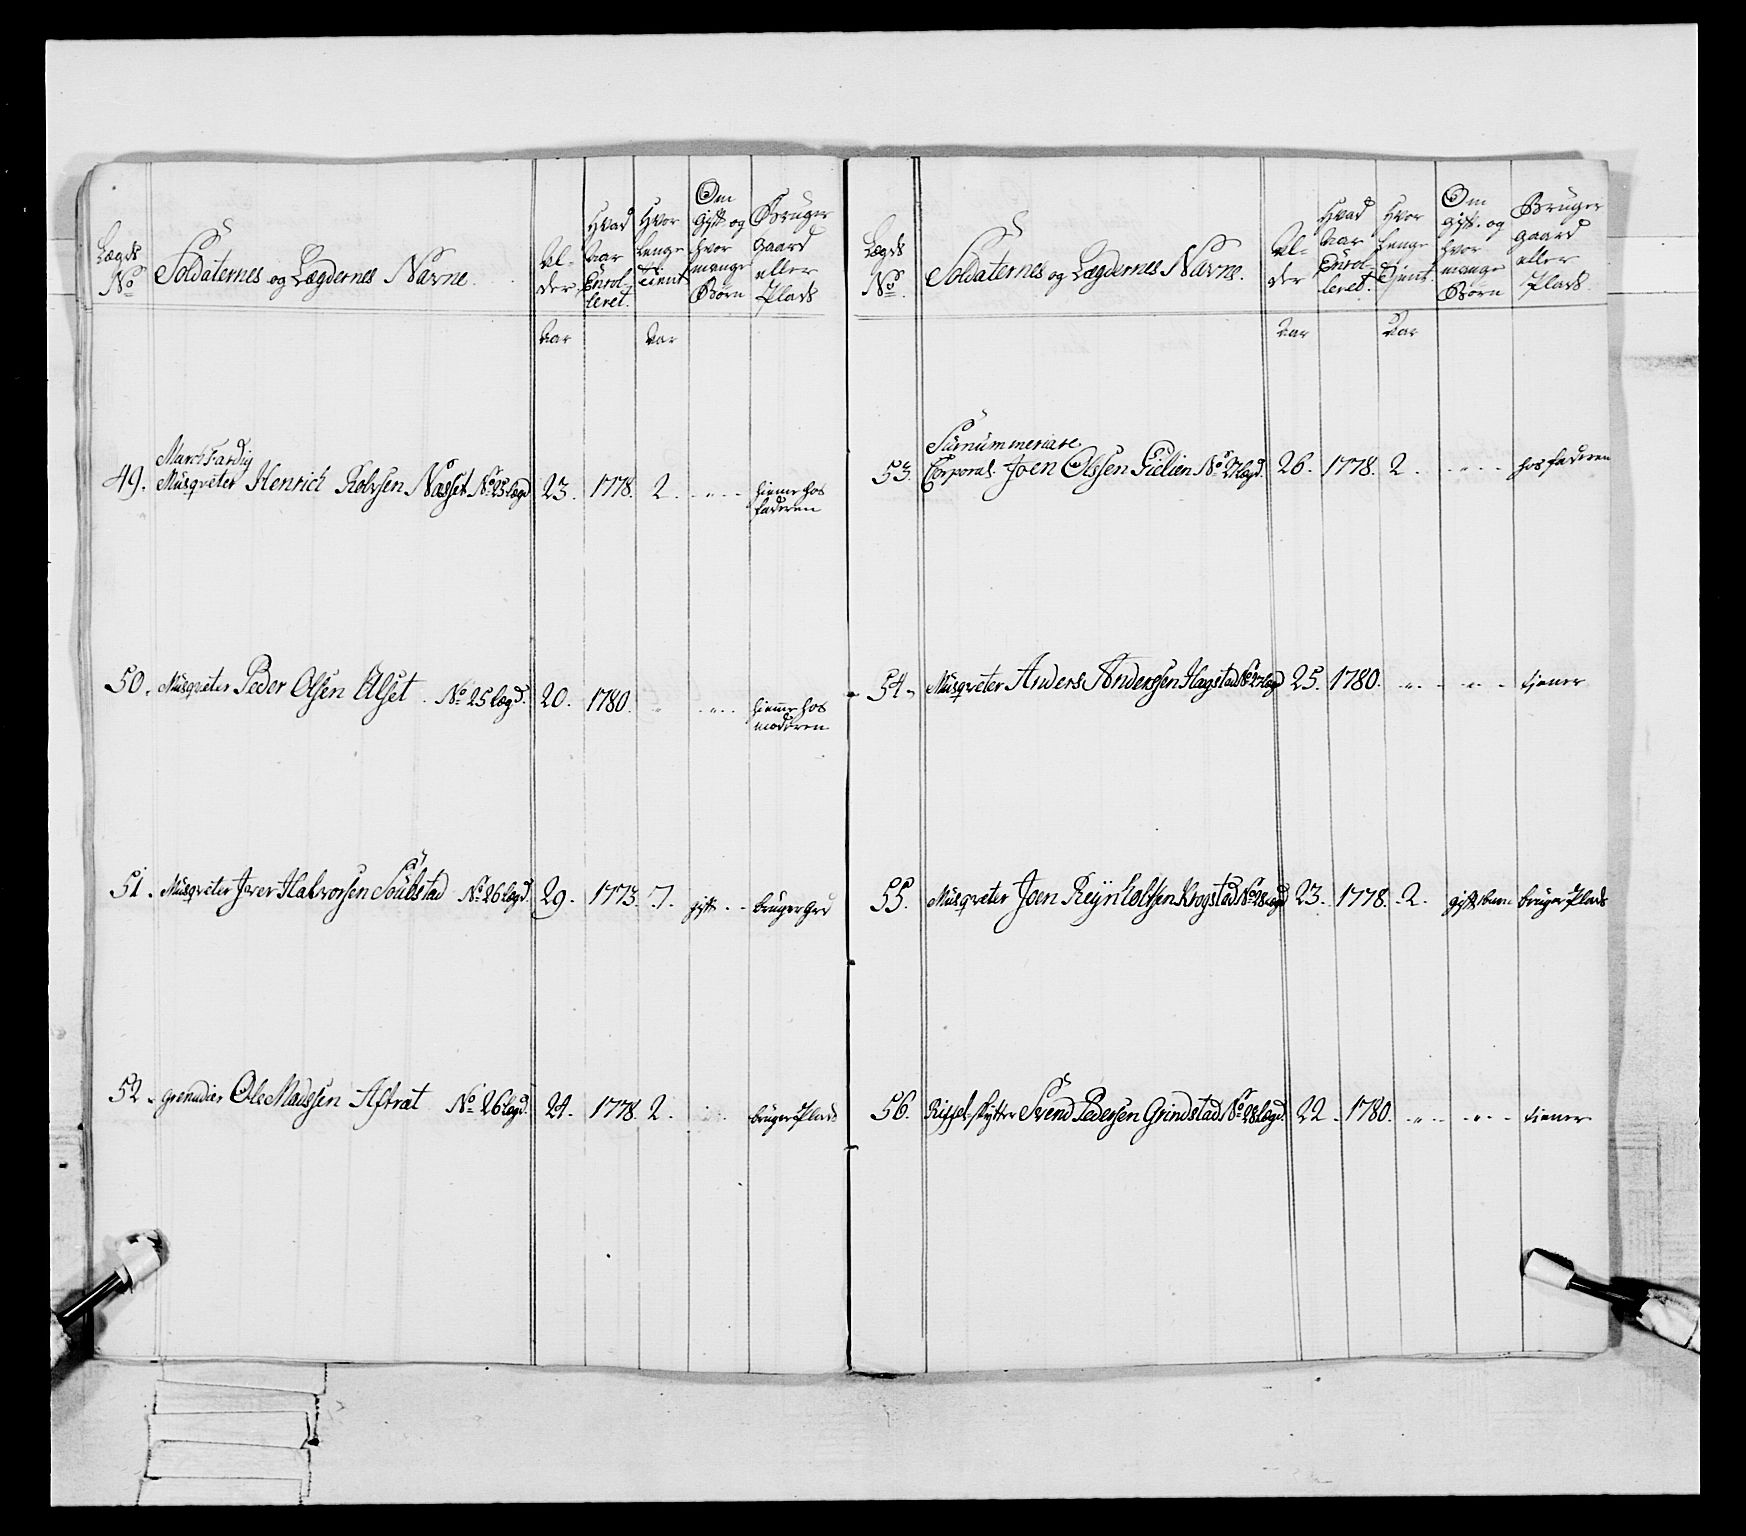 Lægds No
Soldaternes og Lægdernes Navne.
Al-
der
Hvad
Aar
Enrol-
leret.
Hvor
længe
Tient
Om
gift og
hvor
mange
Børn
Bruger
Gaard
eller
Plads
Aar
Aar
49. March Færdig
Musqveter Henrich Rolvsen Næsset No 25 lægd 23. 1778. 2. - " - - hiemme hos
faderen
50. Musqveter Peder Olsen Alset. No 25 lægd. 20. 1780. " - " - - hiemme hos
moderen
51. Musqveter Iver Halvorsen Soelstad No 26 lægd. 29. 1773. 7. gift - - bruger Grd
52. grenadier Ole Madssen Aftræt No 26 lægd. 24. 1778. 2. bruger Plads
Lægds
No
Soldaternes og Lægdernes Navne.
Al-
der
Hvad
Aar
Enrol-
leret.
Hvor
længe
Tient.
Om
gift. og
hvor
mange
Børn
Bruger
Gaard
eller
Plads
Aar
Aar
53. Surnummeriare
Corporal. Joen Olssen Gielien No 27 lægd. 26. 1778. 2. - - - - hos faderen
54. Musqveter Anders Anderssen Hægstad No 27 lægd 25. 1780. - " - - " - - tiener
55. Musqveter Joen Reynholtsen Krogstad No 28 lægd 23. 1778. 2. gift 1 barn bruger Plads
56. Riffel skytter Svend Pedersen Grindstad No 28 lægd. 22. 1780. - " - - " - - tiener